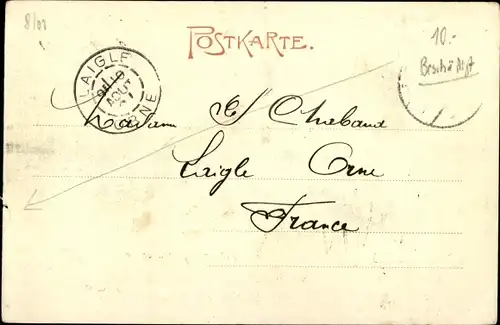 8/01
POSTKARTE.
10.-
Beschädigt
LAIGLE
AOUT
ORNE
Madame Chabaud
Laigle Orne
France